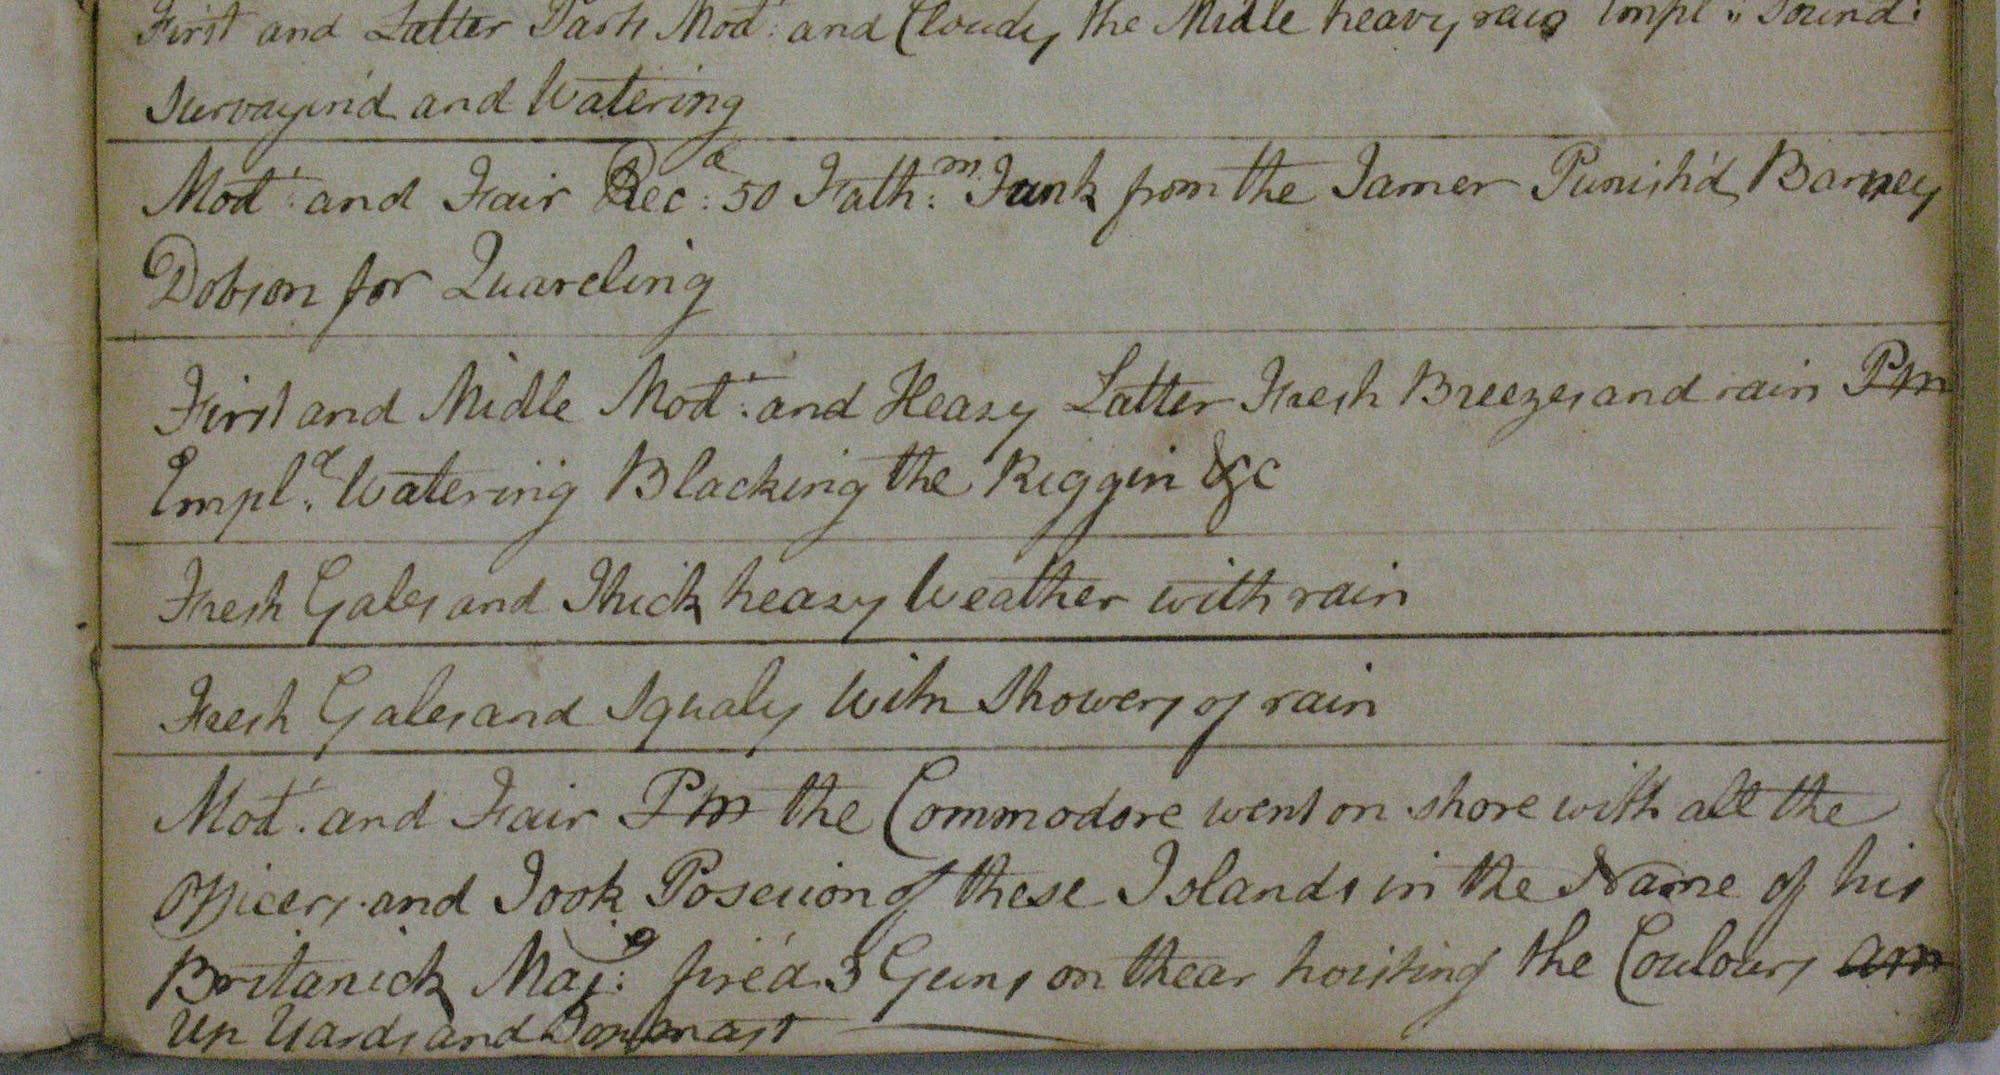 First and Latter Parts Mod.t and Cloudy the Midle heavy rain Empl.d Sound.g
Survaying and Watering
Mod.t and Fair Rec.d 50 Fath.m Junk from the Tamer Punish'd Barney
Dobson for Quareling
First and Midle Mod.t and Heasy Latter Fresh Breezes and rain Pm
Empl.d Watering Blacking the Riggin &c
Fresh Gales and Thick heasy Weather with rain
Fresh Gales and Squaly With Showers of rain
Mod.t and Fair Pm the Commodore went on shore with all the
Officers and Took Posesion of these Islands in the Name of his
Britanick Maj.y fire'd 3 Guns on thear hoisting the Coulours am
Up Yards and Topmast